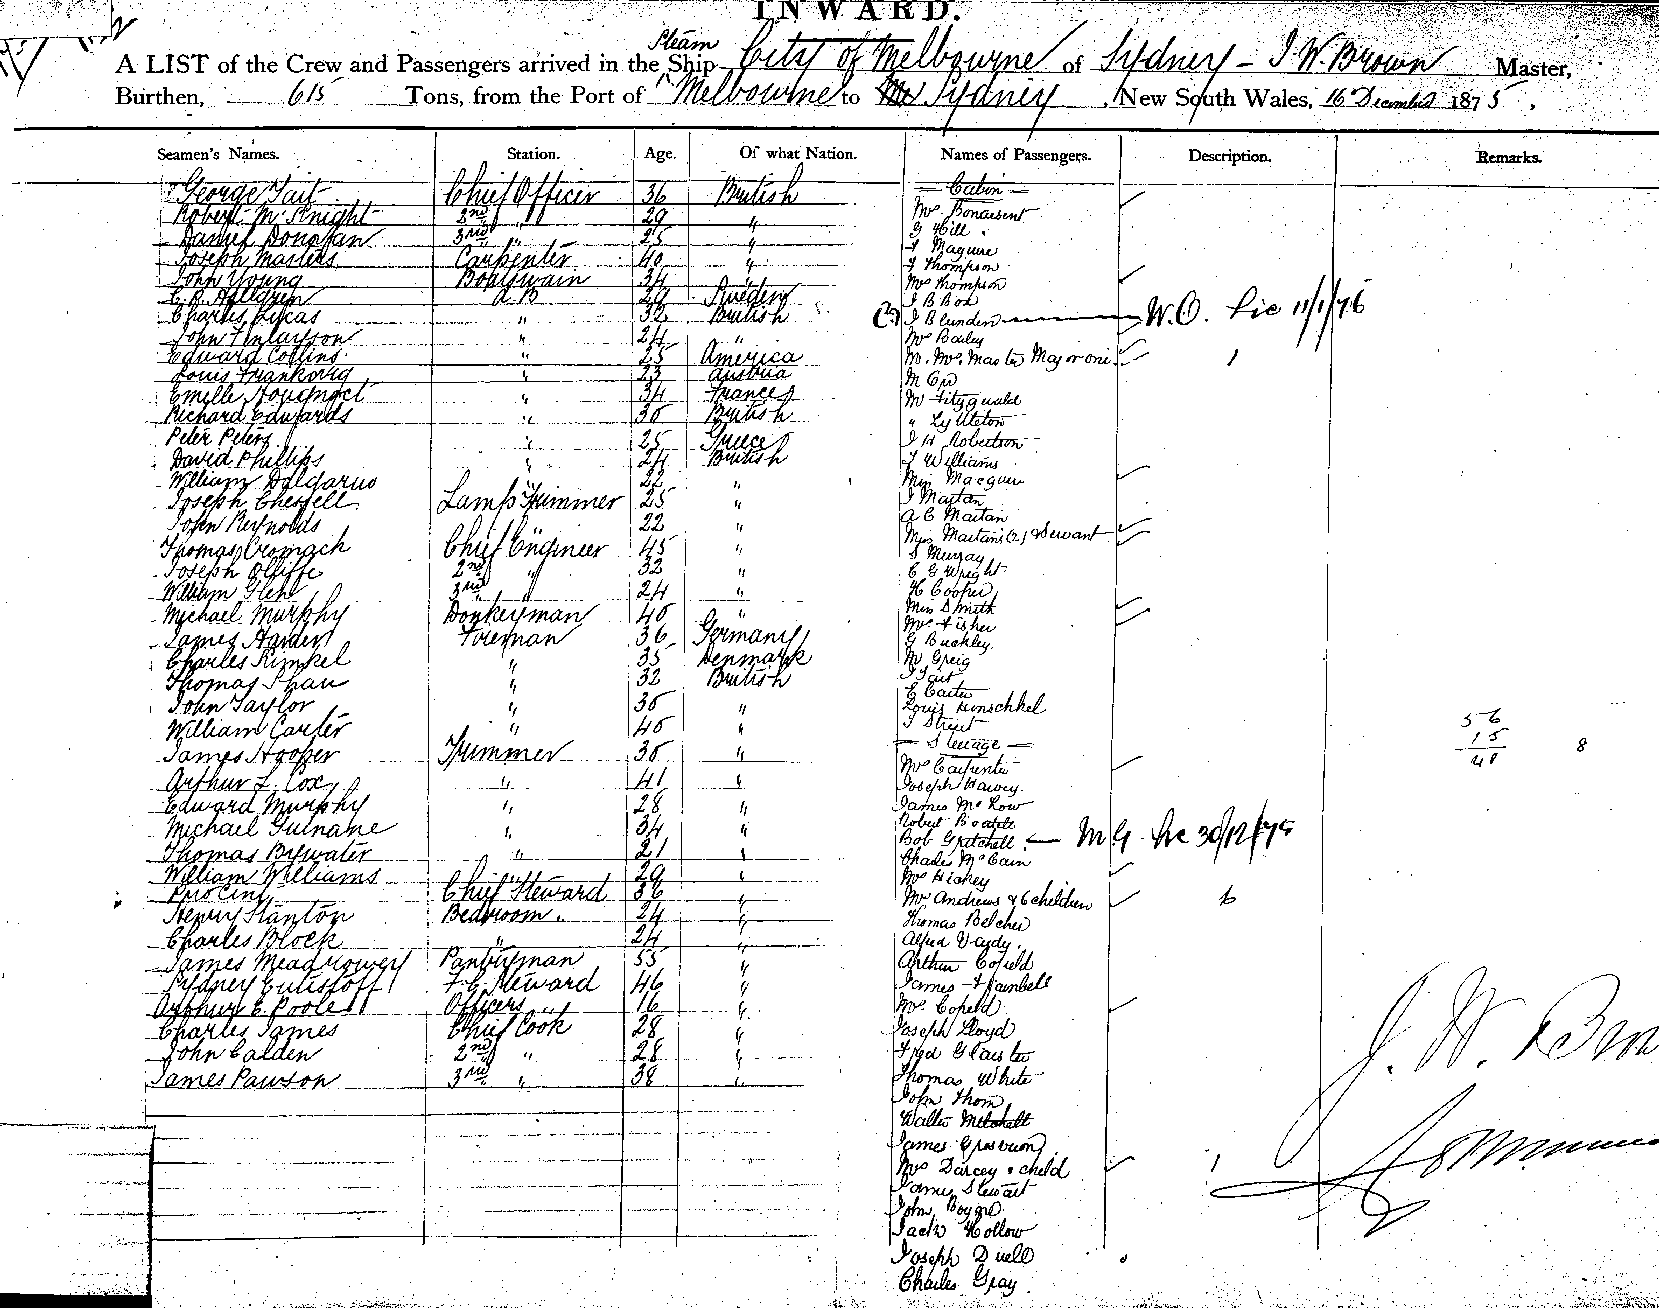 INWARD.
Steam
A LIST of the Crew and Passengers arrived in the Ship City of Melbourne of Sydney - J W. Brown Master,
Burthen, 615 Tons, from the Port of Melbourne to Sydney, New South Wales, 16 December 1875.
Seamen's Names. Station. Age. Of what Nation. Names of Passengers. Description. Remarks.
George Tait Chief Officer 36 British
Robert McKnight 2nd " 29 "
Daniel Donovan 3rd " 25 "
Joseph Masters Carpenter 40 "
John Young Boatswain 34 "
A.B 29 Sweden
Charles Lucas " 32 British
John Finlayson " 24 "
Edward Collins " 25 America
Louis " 23 Austria
Emille " 34 France
Richard Edwards " 30 British
Peter Peters " 25 Greece
David Phillips " 24 British
William " 22 "
Joseph Lamp Trimmer 25 "
John Reynolds " 22 "
Thomas Cromach Chief Engineer 45 "
Joseph Olliffe 2nd " 32 "
William 3rd " 24 "
Michael Murphy Donkeyman 40 "
James Harder Fireman 36 Germany
Charles Kimkel " 35 Denmark
Thomas Shaw " 32 British
John Taylor " 30 "
William Carter " 40 "
James Hooper Trimmer 30 "
Arthur L. Cox " 41 "
Edward Murphy " 28 "
Michael Guiname " 34 "
Thomas Bywater " 21 "
William Williams " 29 "
Chief Steward 36 "
Henry Stanton Bedroom " 24 "
Charles Block " 24 "
James Meadrower Pantryman 55 "
Sydney F.C. Steward 46 "
Arthur E Poole Officers " 16 "
Charles James Chief Cook 28 "
John Calden 2nd " 28 "
James Pawson 3rd " 38 "
Cabin
Mrs Bonarsent
G Hill
J Maguire
J Thompson
Mrs Thompson
J B Box
J Blunden W.O. Lic 11/1/76
Mrs Bailey
M. Mrs. Master Majoroni 1
M
M Fitzgerald
" Lyttleton
J H Robertson
J Williams
Miss Macguire
J Maitan
A C Maitan
Miss Maitans (2) & Servant
S Murray
C G Wright
H Cooper
Miss Smith
Mrs Fisher
G Buckley
M Greig
J Tait
E Carter
Louis Hinschkel
J Street
56
15
41
8
Steerage
Mrs Carpenter
Joseph Harvey
James McKow
Robert
Bob Gritchell M G Lic 30/12/75
Charles McCain
Mrs Hickey
Mrs Andrews & 6 children 6
Thomas Belcher
Alfred Vardy
Arthur Cofield
James
Mrs Cofield
Joseph Lloyd
Fred Glaister
Thomas White
John Thom
Walter Mitchell
James
Mrs Darcey & child 1
James Stewart
John
Jack Hollow
Joseph Duell
Charles Gray
J. W. Bro